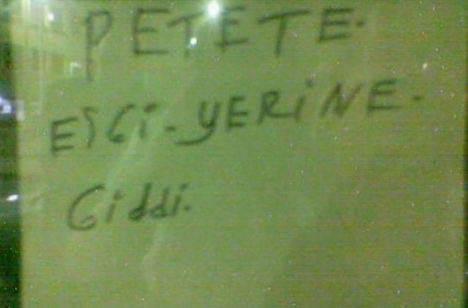 PETETE.
ESCi-YERiNE.
Giddi.